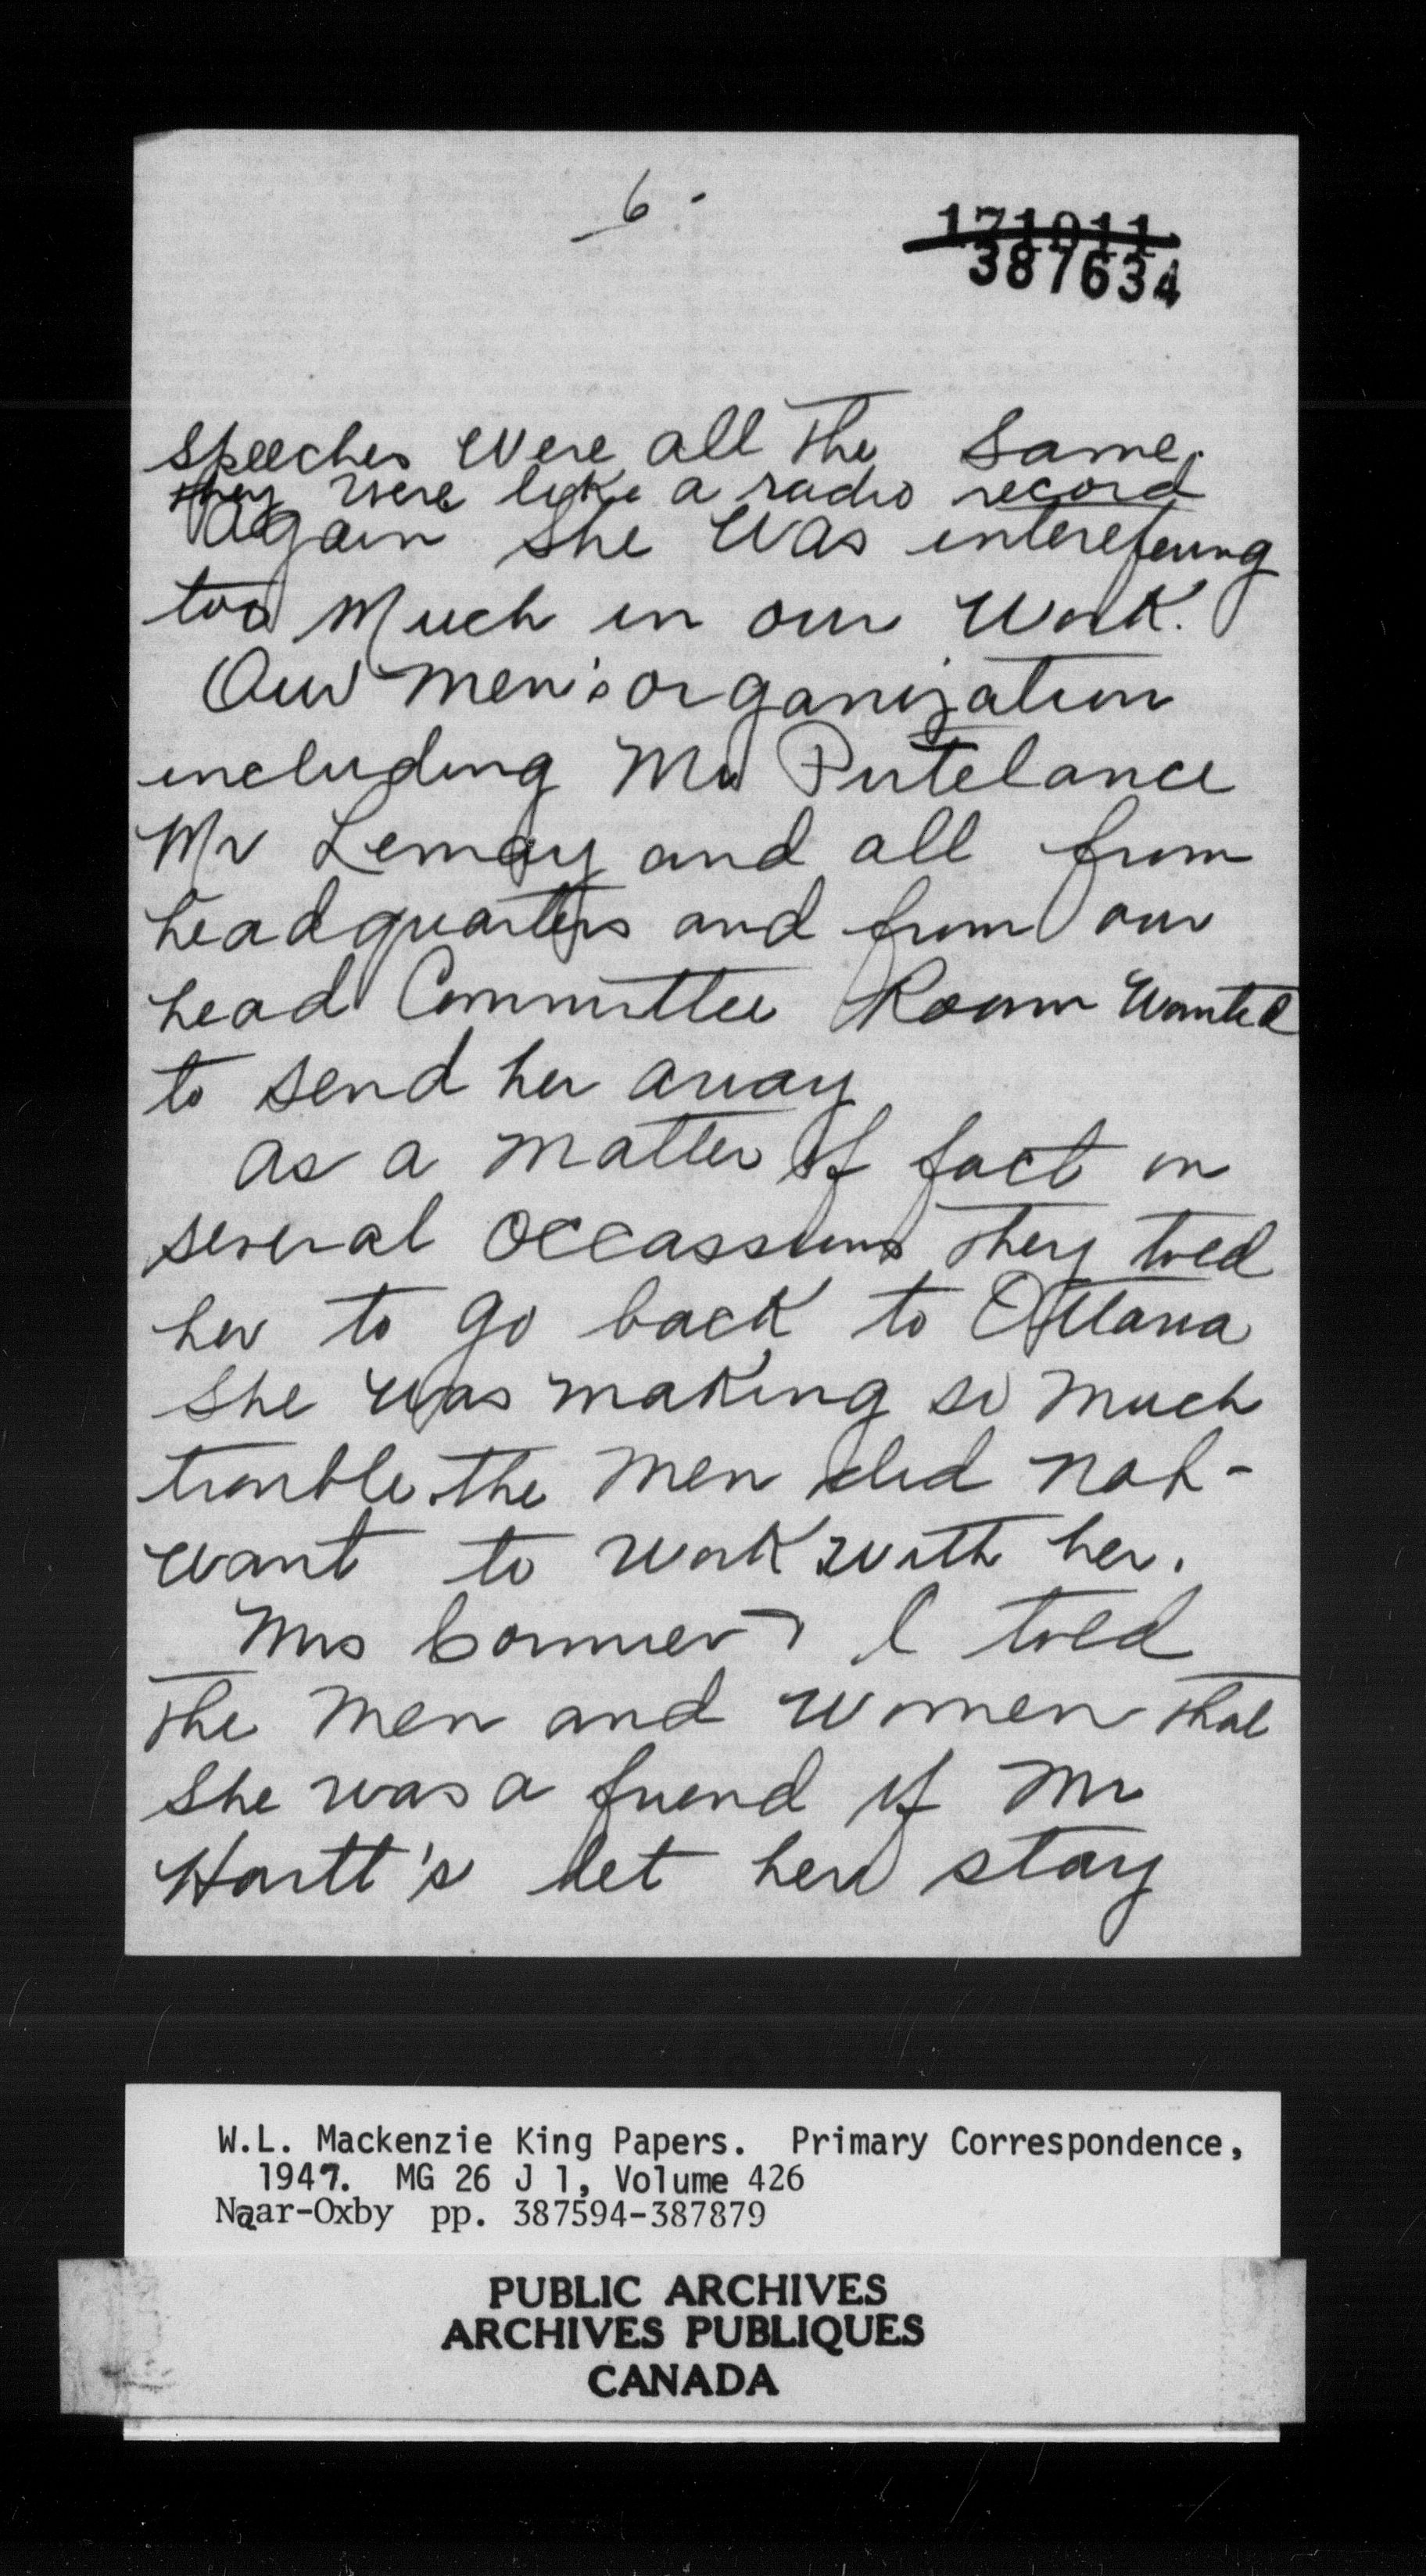 6 -
171011
387634
speeches were all the same,
they were like a radio record
Again she was interefering
too much in our work.
Our men's organization
including Mr Pritelance
Mr Lemay and all from
headquarters and from our
head Committee Room wanted
to send her away
as a matter of fact on
several occassions they told
her to go back to Ottawa
she was making so much
trouble. the men did not -
want to work with her.
Mrs Cormier I told
the men and women that
she was a friend of Mr
Hartt's let her stay
W.L. Mackenzie King Papers. Primary Correspondence,
1947. MG 26 J 1, Volume 426
Naar-Oxby pp. 387594-387879
PUBLIC ARCHIVES
ARCHIVES PUBLIQUES
CANADA